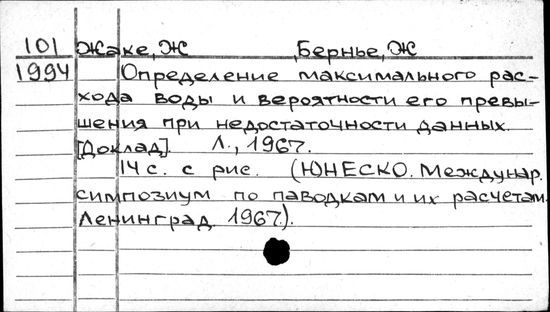 101 Жаке, Ж ,Бернье, Ж
1994 Определение максимального рас-
хода воды и вероятности его превы-
шения при недостаточности данных.
[Доклад]. Л., 1967.
14 с. с рис. (ЮНЕСКО. Междунар.
симпозиум по паводкам и их расчетам.
Ленинград. 1967.).